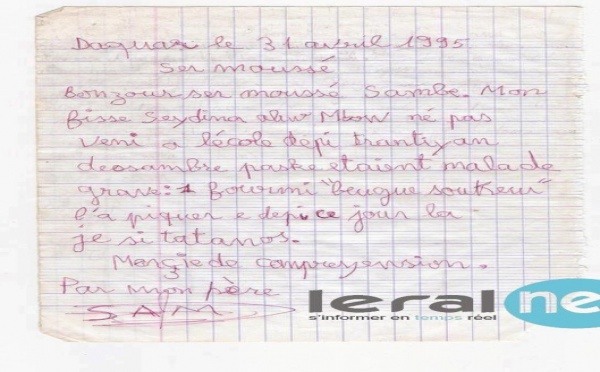 Daquar le 31 avril 1995
Ser moussé
Bonzour ser moussé Sambe. Mon
fisse Seydina aliw Mbow né pas
veni a lécole dépi trantiyan
deosambre paske etaient malade
grave: 1 fourmi "beugue soukeur"
l'a piquer e depi ce jour la
je si tatanos.
Merçie de compreyension.
Par mon père
SAM
leral ne
s'informer en temps réel